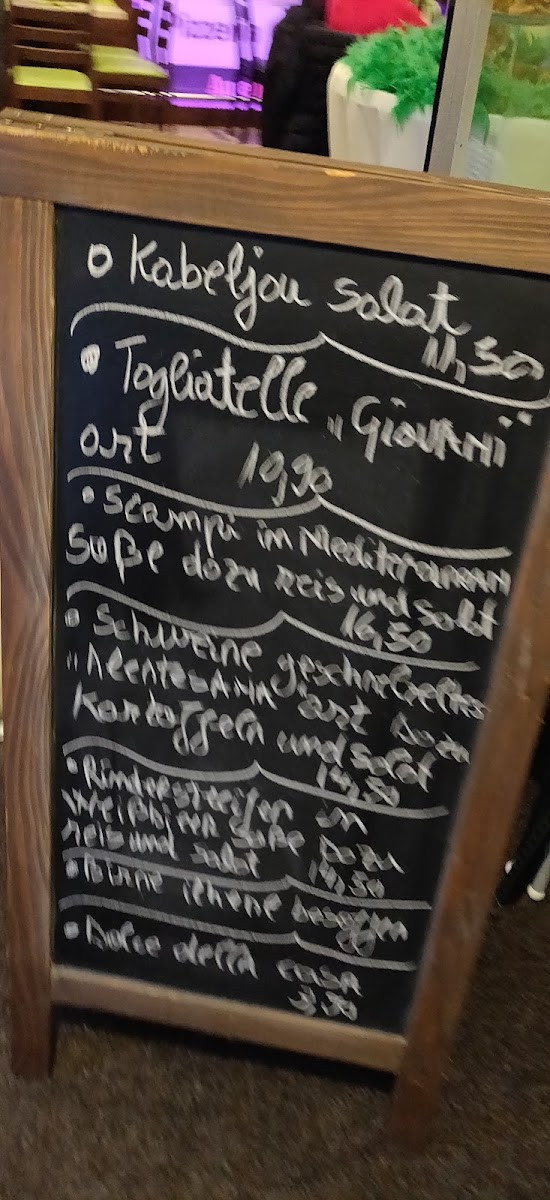 Pizzeria
Kabeljou salat
11,50
Togliatelle „GIOVANI"
art 19,90
Scampi in Mediteranean
Soße dazu Reis und Salat
16,50
Schweine geschnetzeltes
"Alentesana" art dazu
Kartoffeln und Salat
14,50
Rinderstreifen in
Weißbier Soße dazu
reis und salat 14,50
Birne Helene besoffen
Dolce della casa